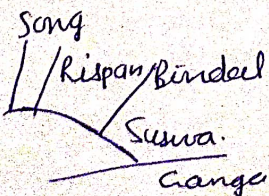 Song
Rispan Bindal
Suswa.
Ganga